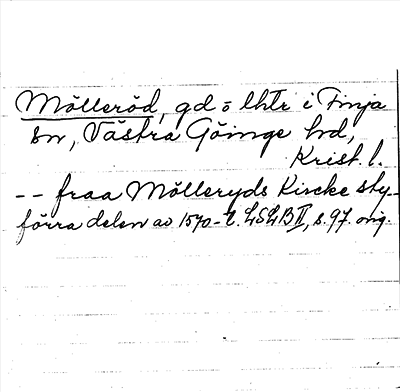 Mölleröd, gd o lhtr i Finja
sn, Västra Göinge hd,
Krist. l.
-- fraa Mölleryds Kircke sty-
förra delen av 1570-t. LSLB II, s. 97. orig.